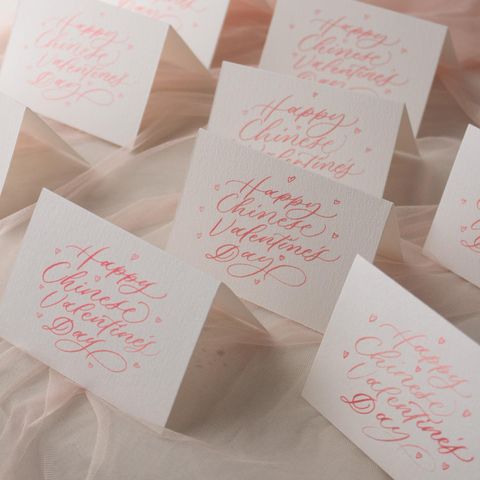 Happy
Chinese
Valentine's
Day
Happy
Chinese
Valentine's
Day
Happy
Chinese
Valentine's
Happy
Chinese
Valentine's
Day
Happy
Chinese
Valentine's
Day
Happy
Chinese
Valentine's
Day